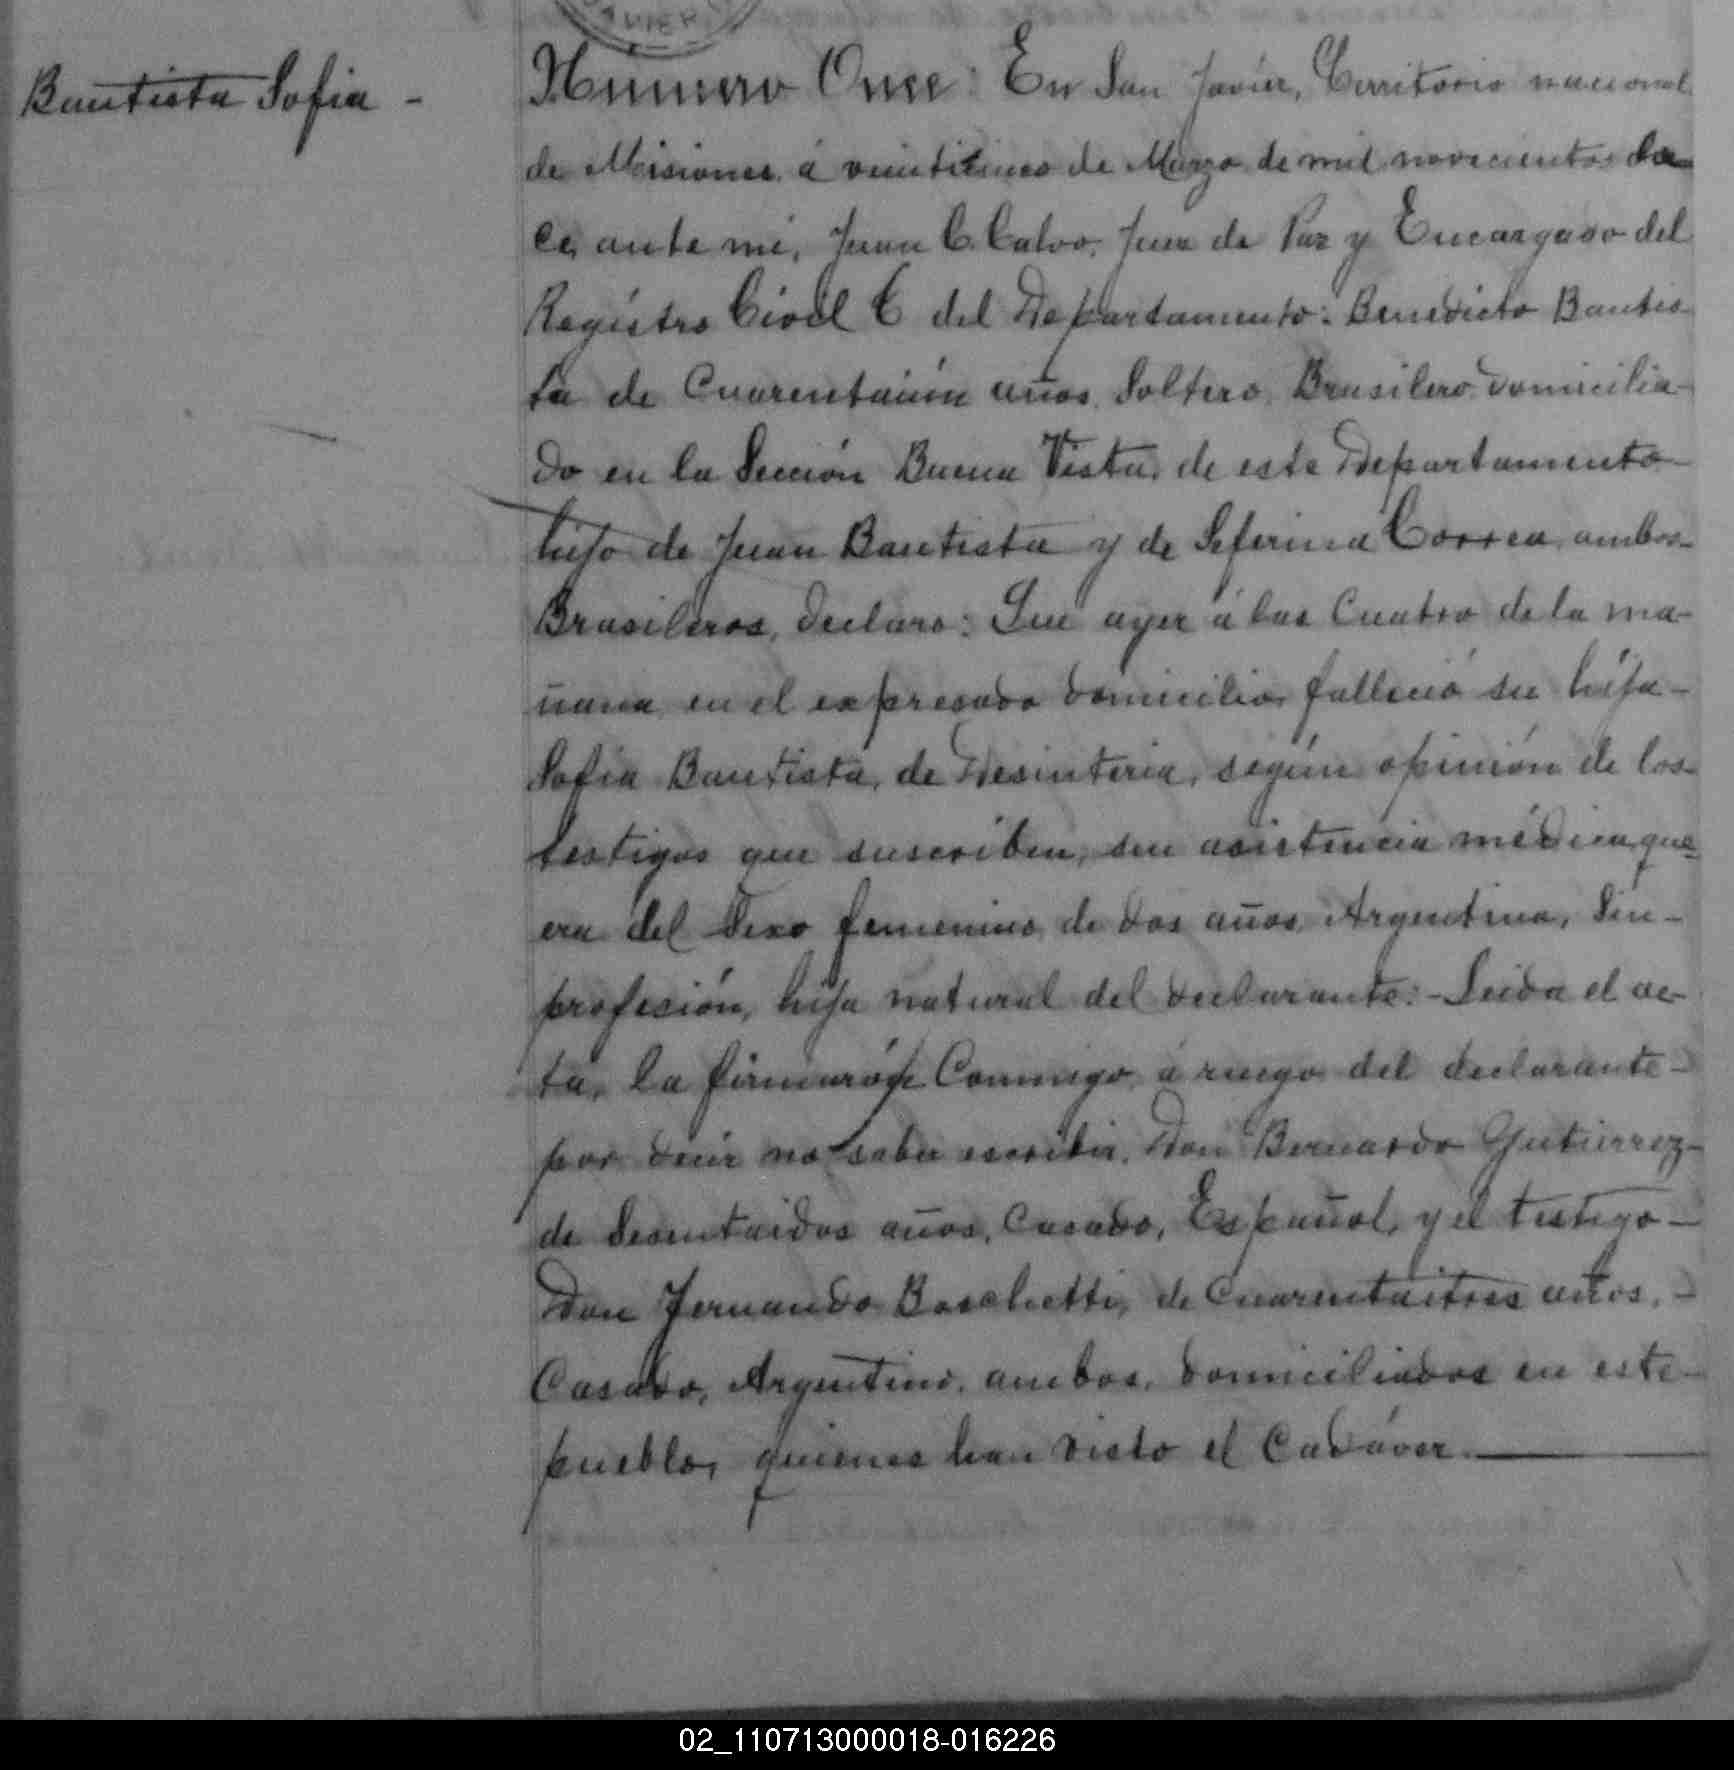 Bautista Sofia -
Número Once: En San Javier, Territorio nacional
de Misiones, á veinticinco de Marzo de mil novecientos do-
ce, ante mí, Juan C. Calvo, Juez de Paz y Encargado del
Registro Civil C del Departamento: Benedicto Bautis-
ta de Cuarentaiún años, Soltero, Brasilero, domicilia-
do en la Sección Buena Vista, de este Departamento-
hijo de Juan Bautista y de Seferina Correa, ambos-
Brasileros, declaro: Que ayer á las Cuatro de la ma-
ñana en el expresado domicilio, falleció su hija-
Sofia Bautista, de Desinteria, según opinión de los-
testigos que suscriben, sin asistencia médica, que-
era del Sexo femenino, de dos años, Argentina, Sin-
profesión, hija natural del declarante: - Leida el ac-
ta, la firmarón Conmigo, á ruego del declarante-
por decir no saber escribir, Don Bernardo Gutierrez-
de Sesentaidos años, Casado, Español, y el testigo-
Don Fernando Boschetti, de Cuarentaitres años, -
Casado, Argentino, ambos, domiciliados en este-
pueblo, quienes han visto el Cadáver.
02_110713000018-016226